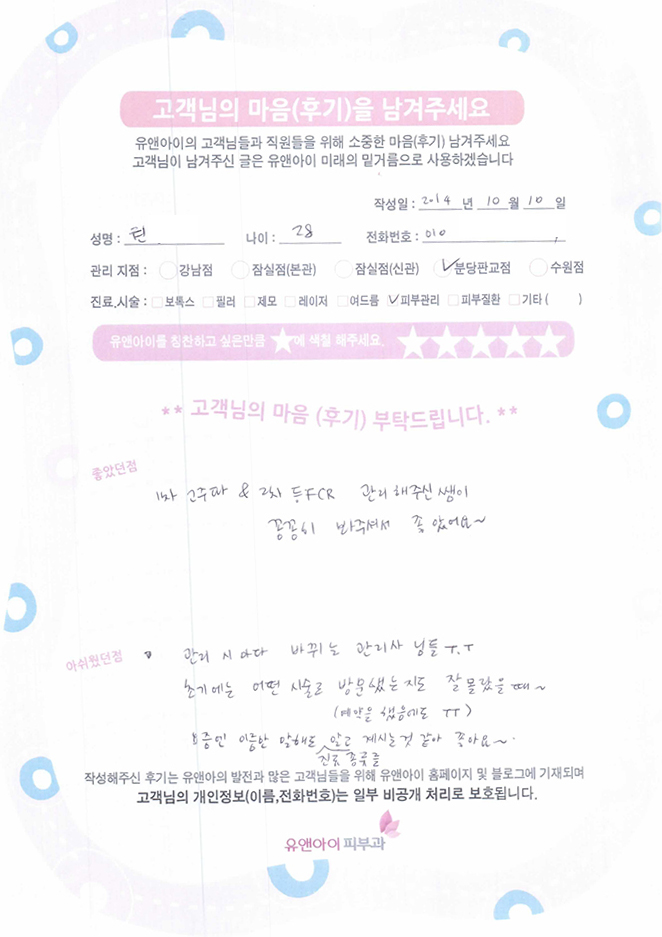 고객님의 마음(후기)을 남겨주세요
유앤아이의 고객님들과 직원들을 위해 소중한 마음(후기) 남겨주세요
고객님이 남겨주신 글은 유앤아이 미래의 밑거름으로 사용하겠습니다
작성일 : 2014 년 10 월 10 일
성명 : 현 나이 : 28 전화번호 : 010
관리 지점 : 강남점 잠실점(본관) 잠실점(신관) 분당판교점 수원점
진료.시술 : 보톡스 필러 제모 레이저 여드름 피부관리 피부질환 기타 ( )
유앤아이를 칭찬하고 싶은만큼 ★에 색칠 해주세요. ★★★★★
** 고객님의 마음 (후기) 부탁드립니다. **
좋았던점
1차 고주파 & 2차 등FCR 관리 해주신 쌤이
꼼꼼히 봐주셔서 좋았어요~
아쉬웠던점
관리 시 마다 바뀌는 관리사 님들 T.T
초기에는 어떤 시술로 방문했는지도 잘 몰랐을 때~
(예약을 했음에도 ㅠㅠ)
요즘인 이름만 말해도 알고 계시는것 같아 좋아요~.
진료 종류를
작성해주신 후기는 유앤아의 발전과 많은 고객님들을 위해 유앤아이 홈페이지 및 블로그에 기재되며
고객님의 개인정보(이름,전화번호)는 일부 비공개 처리로 보호됩니다.
유앤아이 피부과